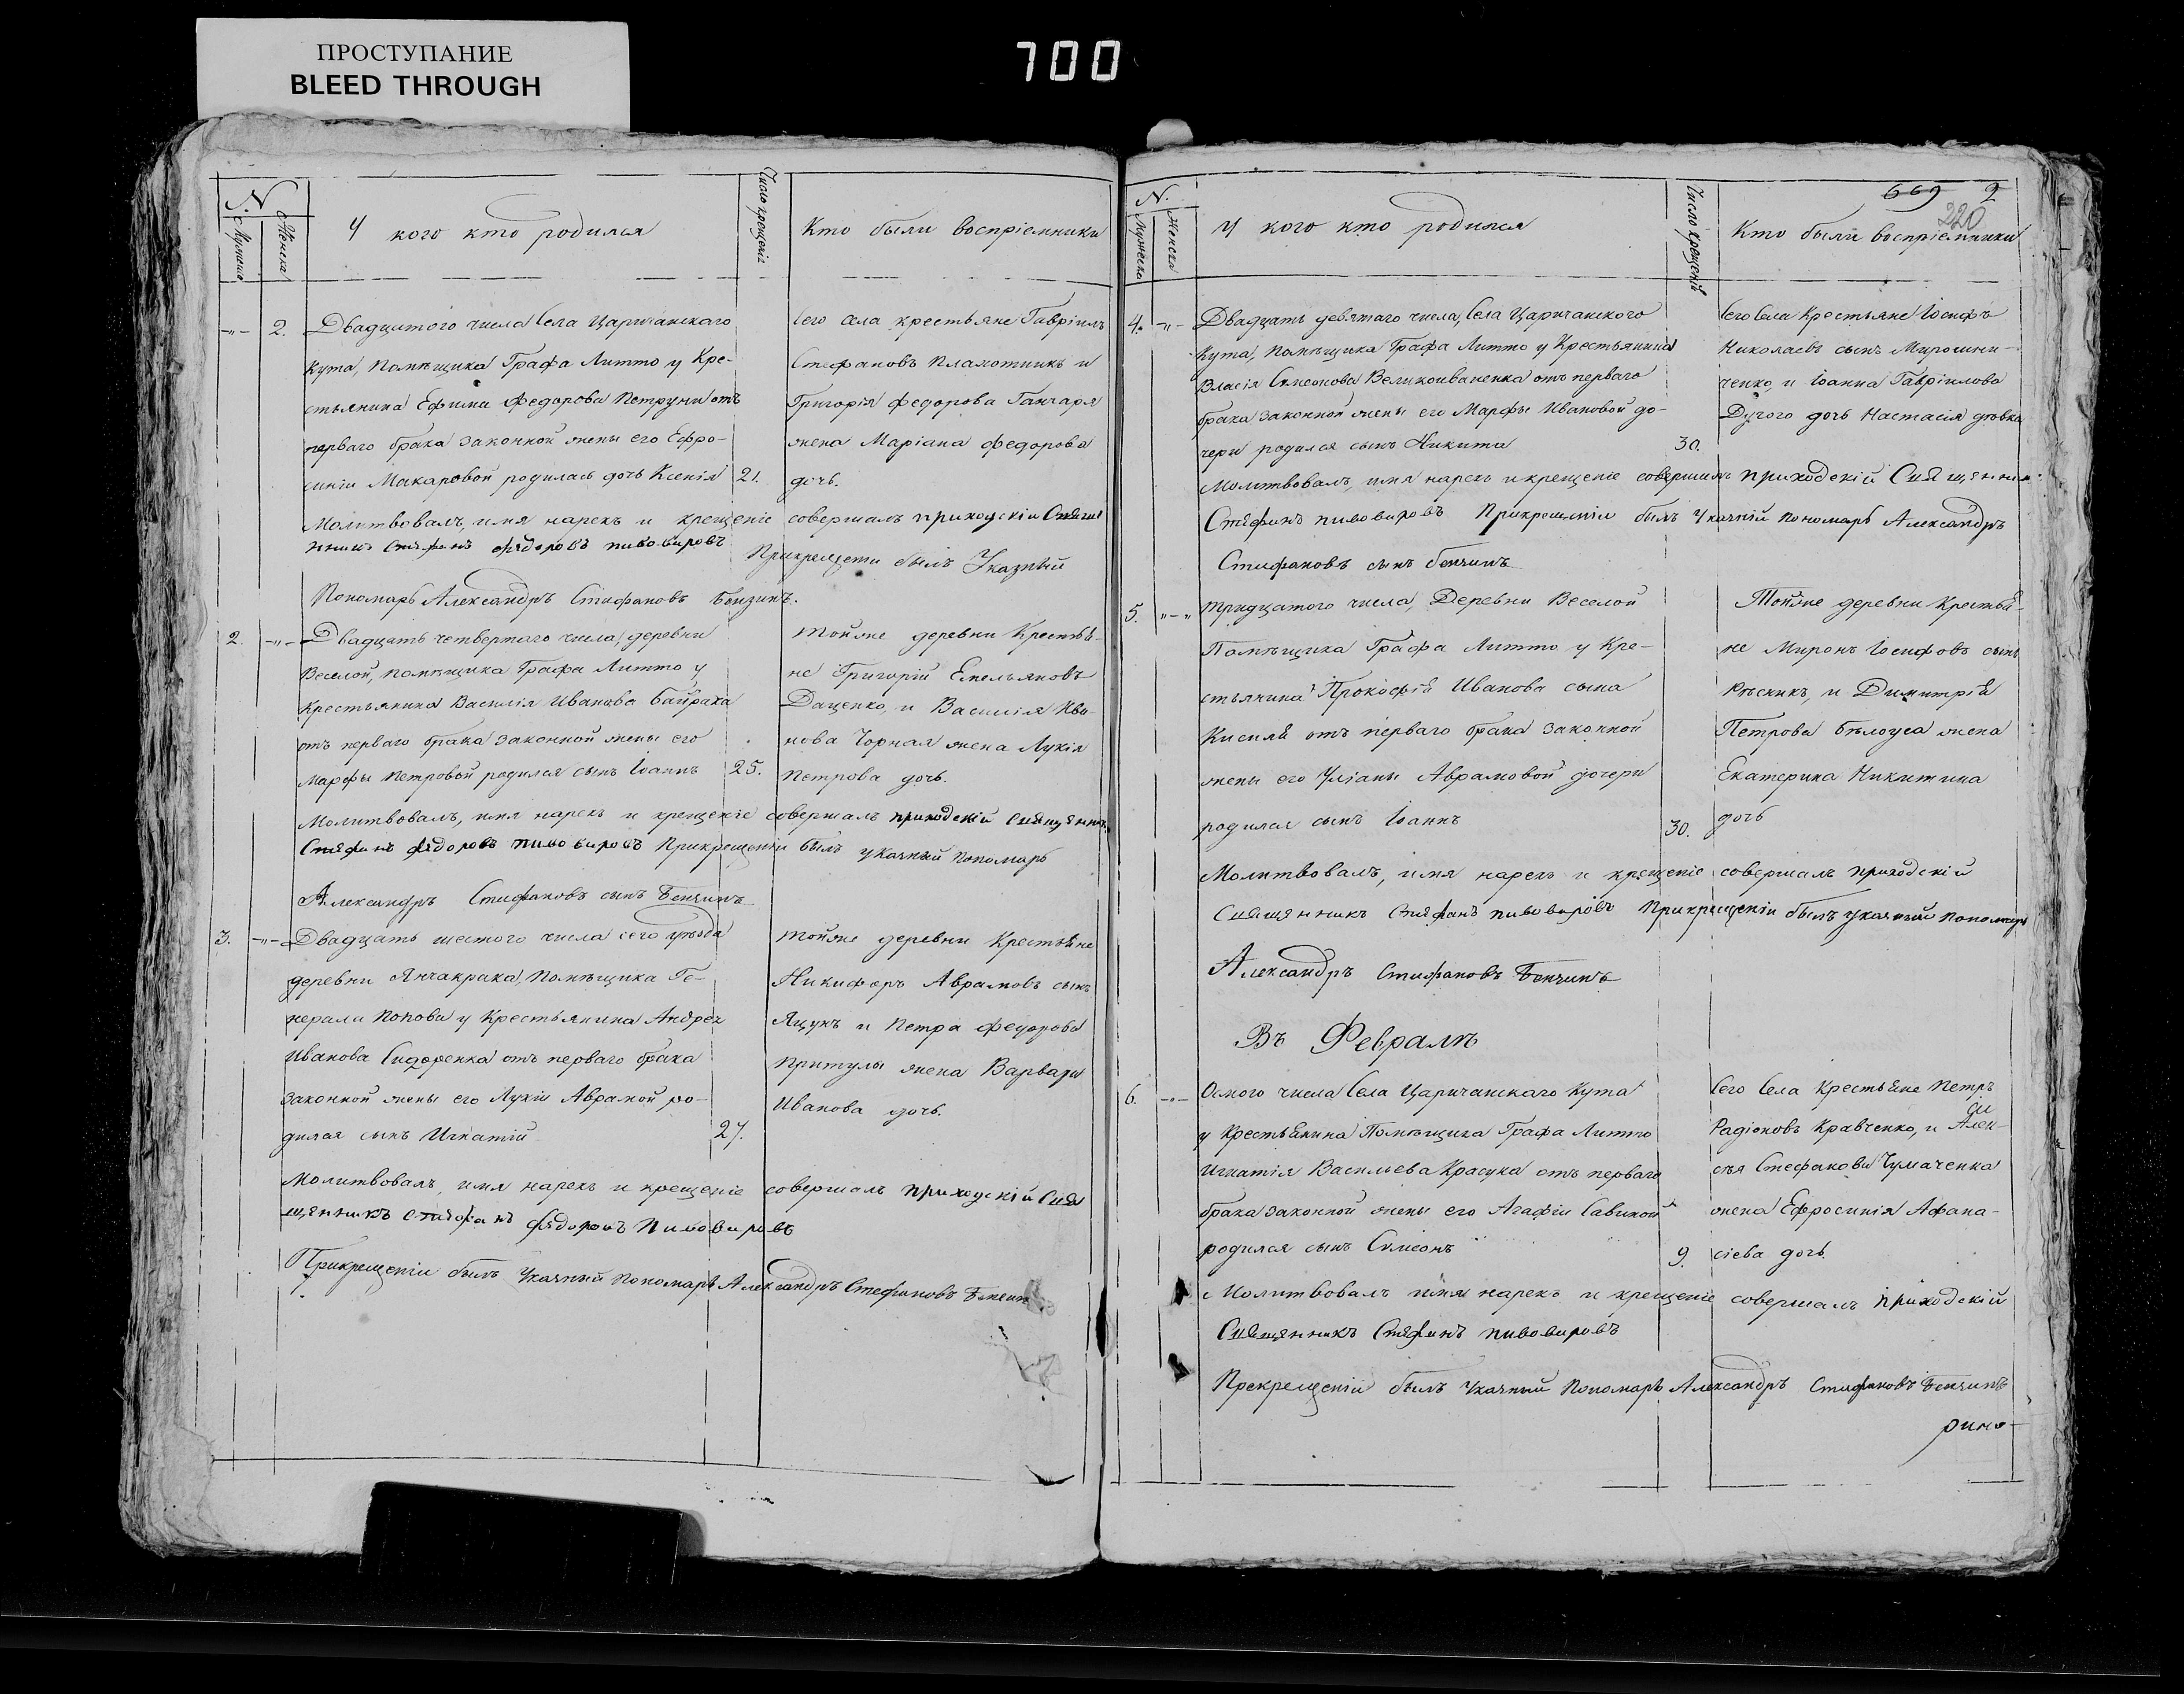 ПРОСТУПАНИЕ
BLEED THROUGH
700
N.
Мужеска
Женска
У кого кто родился
Число крещенія
Кто были воспріемники
-„- 2.
Двадцатого числа Села Царичанскаго
Кута, Помѣщика Графа Литто у Кре-
стьянина Ефима Федорова Петруни отъ
перваго брака законной жены его Ефро-
синіи Макаровой родилась дочь Ксенія 21.
Сего села крестьяне Гавріилъ
Стефановъ Плахотникъ и
Григорія Федорова Ганчаря
жена Маріана Федорова
дочь.
Молитвовалъ, имя нарекъ и крещеніе совершалъ приходскій Свяще
нникъ Стефанъ Федоровъ Пивоваровъ
Прикрещени былъ Указный
Пономарь Александръ Стефановъ Бензинъ.
2. -„-
Двадцать четвертаго числа, деревни
Веселой, помѣщика Графа Литто у
Крестьянина Василія Иванова Байрака
отъ перваго брака законной жены его
Марфы Петровой родился сынъ Іоаннъ 25.
тойже деревни Крестья-
не Григорій Емельяновъ
Даценко, и Василія Ива-
нова Чорная жена Лукія
Петрова дочь.
Молитвовалъ, имя нарекъ и крещеніе совершалъ приходскій Священникъ
Стефанъ Федоровъ Пивоваровъ Прикрещеніи былъ указный Пономарь
Александръ Стефановъ сынъ Бензинъ
3. -„-
Двадцать шестого числа сего уѣзда
деревни Янчакрака, Помѣщика Ге-
нерала Попова у Крестьянина Андрея
Иванова Сидоренка отъ перваго брака
законной жены его Лукіи Аврамой ро-
дился сынъ Игнатій 27.
тойже деревни Крестьяне
Никифоръ Аврамовъ сынъ
Яцунъ и Петра Федорова
Притулы жена Варвара
Иванова дочь.
Молитвовалъ, имя нарекъ и крещеніе совершалъ приходскій Свя
щенникъ Стефанъ Федоровъ Пивоваровъ
Прикрещеніи былъ Указный Пономарь Александръ Стефановъ Бензинъ
669 2
220
N.
Мужеска
Женска
У кого кто родился
Число крещенія
Кто были воспріемники
4. -„-
Двадцать девятаго числа, Села Царичанского
Кута, Помѣщика Графа Литто у Крестьянина
Власія Симеонова Великоиваненка отъ перваго
брака законной жены его Марфы Ивановой до-
чери родился сынъ Никита 30.
Сего Села Крестьяне Іосифъ
Николаевъ сынъ Мирошни-
ченко, и Іоанна Гавріилова
Дугого дочь Настасія дѣвка
Молитвовалъ, имя нарекъ и крещеніе совершалъ приходскій Священникъ
Стефанъ Пивоваровъ Прикрещеніи былъ Указный Пономарь Александръ
Стефановъ сынъ Бензинъ
5. „-„
тридцатого числа, Деревни Веселой
Помѣщика Графа Литто у Кре-
стьянина Прокофія Иванова сына
Кисиля отъ перваго брака законной
жены его Уліаны Аврамовой дочери
родился сынъ Іоаннъ 30.
Тойже деревни Крестья-
не Миронъ Іосифовъ сынъ
Рѣсникъ, и Димитрія
Петрова Бѣлоуса жена
Екатерина Никитина
дочь
Молитвовалъ, имя нарекъ и крещеніе совершалъ приходскій
Священникъ Стефанъ Пивоваровъ Прикрещеніи былъ указный пономарь
Александръ Стефановъ Бензинъ
Въ Февралѣ
6. -„-
Осмого числа Села Царичанскаго Кута
у Крестьянина Помѣщика Графа Литто
Игнатія Васильева Красука отъ перваго
брака законной жены его Агафіи Савиной
родился сынъ Симеонъ 9.
Сего Села Крестьяне Петръ
Радіоновъ Кравченко, и Алек-
сѣя Стефанова Чумаченка
жена Ефросинія Афана-
сіева дочь.
Молитвовалъ имя нарекъ и крещеніе совершалъ приходскій
Священникъ Стефанъ Пивоваровъ
Прекрещеніи былъ Указный Пономарь Александръ Стефановъ Бензинъ